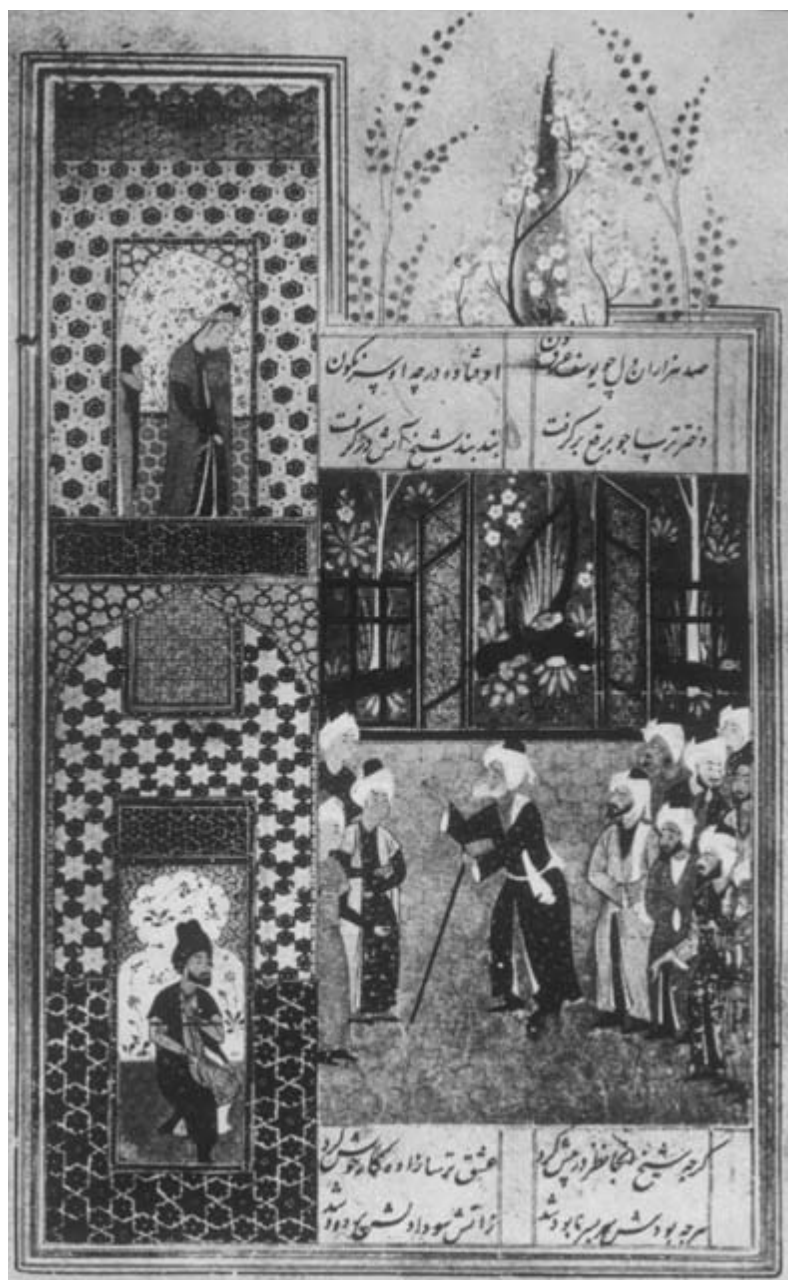 صد هزاران دل چو یوسف غرق خون اوفتاده در چه او سرنگون
دختر ترسا چو برقع برگرفت بند بند شیخ آتش درگرفت
گرچه شیخ آنجا نظر در پیش کرد عشق ترسا زاده کار خویش کرد
هرچه بودش سر بسر نابود شد زاتش سودا دلش پر دود شد